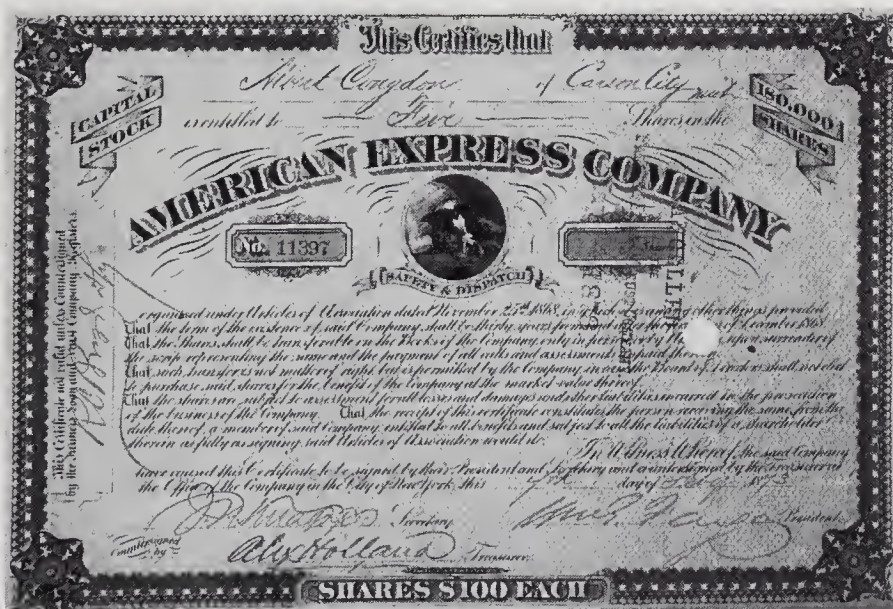 This Certifies that
Albert Congdon of Carson City Mich
CAPITAL STOCK
180,000 SHARES
is entitled to Five Shares in the
AMERICAN EXPRESS COMPANY
No. 11397
SAFETY & DISPATCH
organized under Articles of Association dated November 25th 1868, in which it is among other things provided
That the term of the existence of said Company shall be thirty years from and after the day of December 1868.
That the Shares shall be transferable on the Books of the Company only in person or by upon surrender of
the scrip representing the same and the payment of all calls and assessments unpaid thereon
That such transfer is not matter of right, but is permitted by the Company in case the Board of Directors shall not elect
to purchase said shares for the benefit of the Company at the market value thereof.
That the shares are subject to assessment for all losses and damages and other liabilities incurred in the prosecution
of the business of the Company. That the receipt of this certificate constitutes the person receiving the same, from the
date thereof, a member of said Company, entitled to all benefits and subject to all the liabilities of a shareholder
therein as fully as signing said Articles of Association would do.
In Witness Whereof, the said Company
have caused this Certificate to be signed by their President and Secretary and countersigned by the Treasurer at
the Office of the Company in the City of New York, this 7th day of 1873
Secretary
Wm G Fargo President
Countersigned by Alex Holland Treasurer
SHARES $100 EACH
This Certificate not valid unless Countersigned
by the Company, Registers.